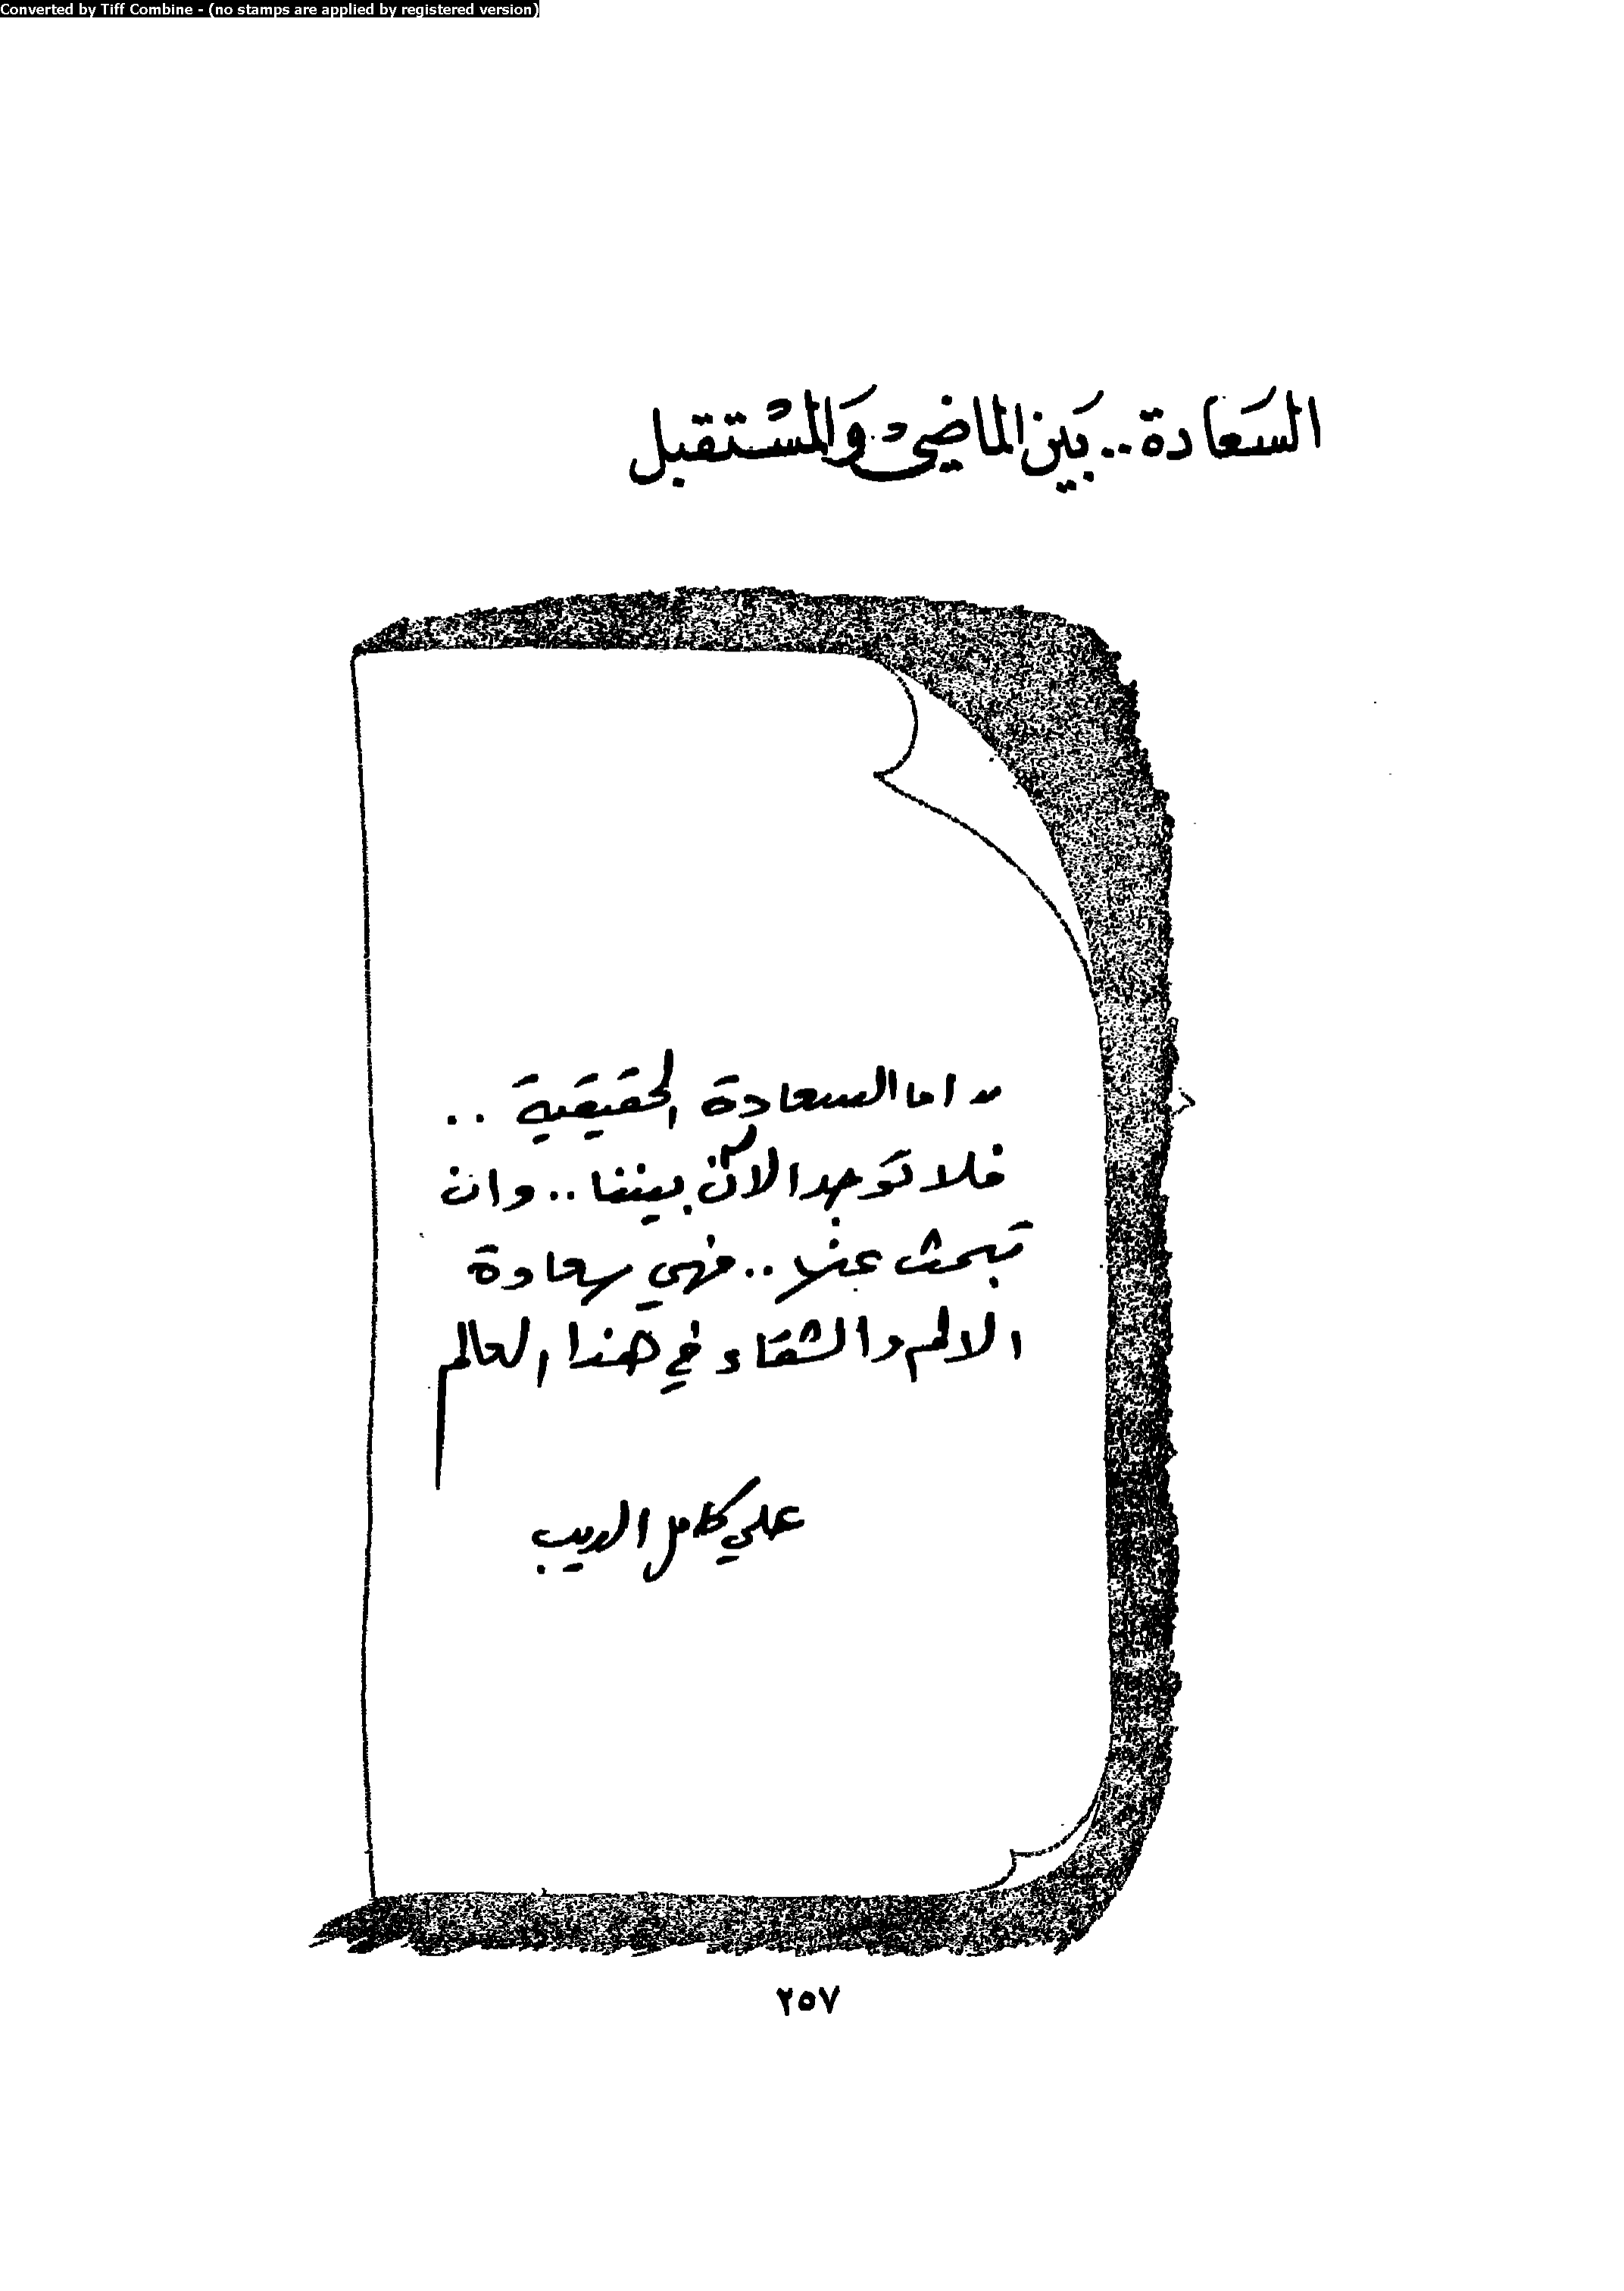 Converted by Tiff Combine - (no stamps are applied by registered version)
السَعادة.. بَين الماضي وَالمسْتقبل
" اما السعادة الحقيقية ..
فلا توجد الآن بيننا .. وان
تبحث عنها .. فهي سعادة
الالم والشقاء في هذا العالم
علي كامل الديب
٢٥٧